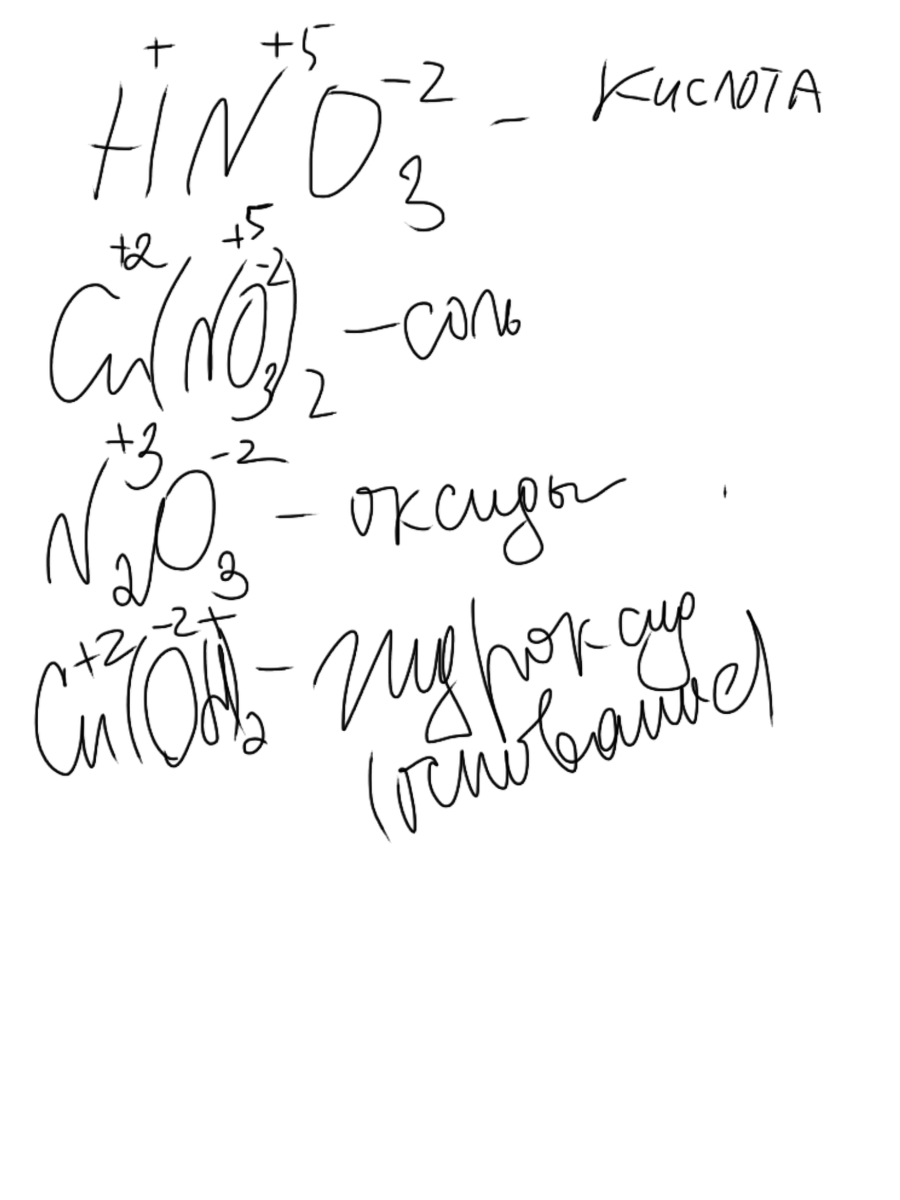 H⁺N⁺⁵O₃⁻² – кислота
Cu⁺²(N⁺⁵O₃⁻²)₂ – соль
N₂⁺³O₃⁻² – оксиды
Cu⁺²(O⁻²H⁺)₂ – гидроксид
(основание)